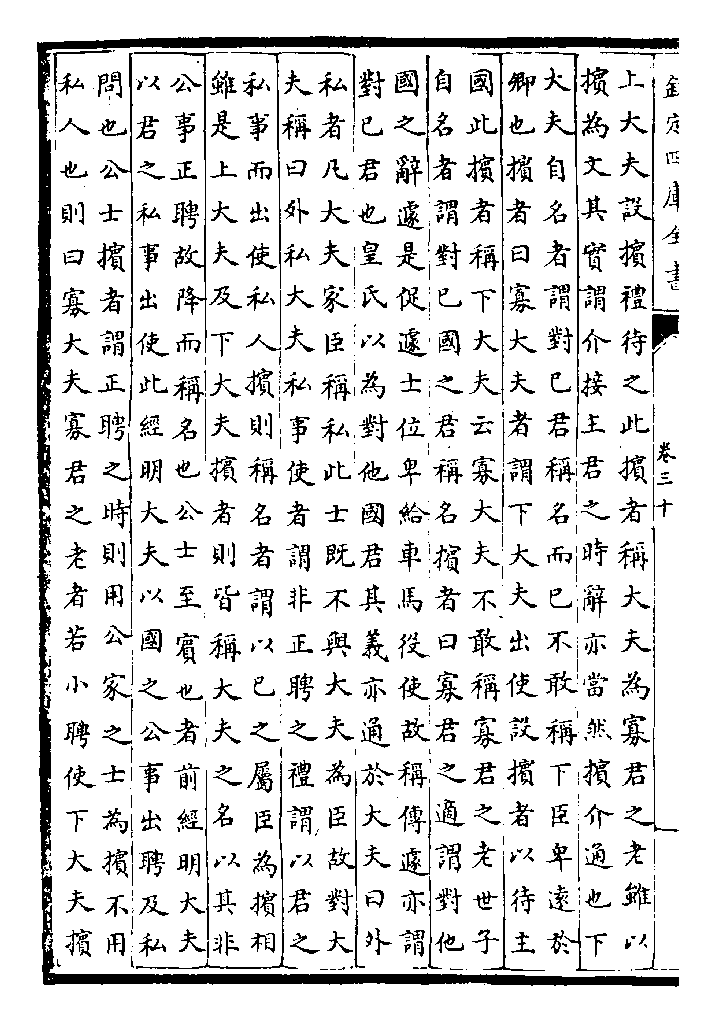 欽定四庫全書
卷三十
上大夫設擯禮待之此擯者稱大夫為寡君之老雖以
擯為文其實謂介接主君之時辭亦當然擯介通也下
大夫自名者謂對已君稱名而已不敢稱下臣卑遠於
卿也擯者曰寡大夫者謂下大夫出使設擯者以待主
國此擯者稱下大夫云寡大夫不敢稱寡君之老世子
自名者謂對已國之君稱名擯者曰寡君之適謂對他
國之辭遽是促遽士位卑給車馬役使故稱傳遽亦謂
對已君也皇氏以為對他國君其義亦通於大夫曰外
私者凡大夫家臣稱私此士既不與大夫為臣故對大
夫稱曰外私大夫私事使者謂非正聘之禮謂以君之
私事而出使私人擯則稱名者謂以已之屬臣為擯相
雖是上大夫及下大夫擯者則皆稱大夫之名以其非
公事正聘故降而稱名也公士至賓也者前經明大夫
以君之私事出使此經明大夫以國之公事出聘及私
問也公士擯者謂正聘之時則用公家之士為擯不用
私人也則曰寡大夫寡君之老者若小聘使下大夫擯